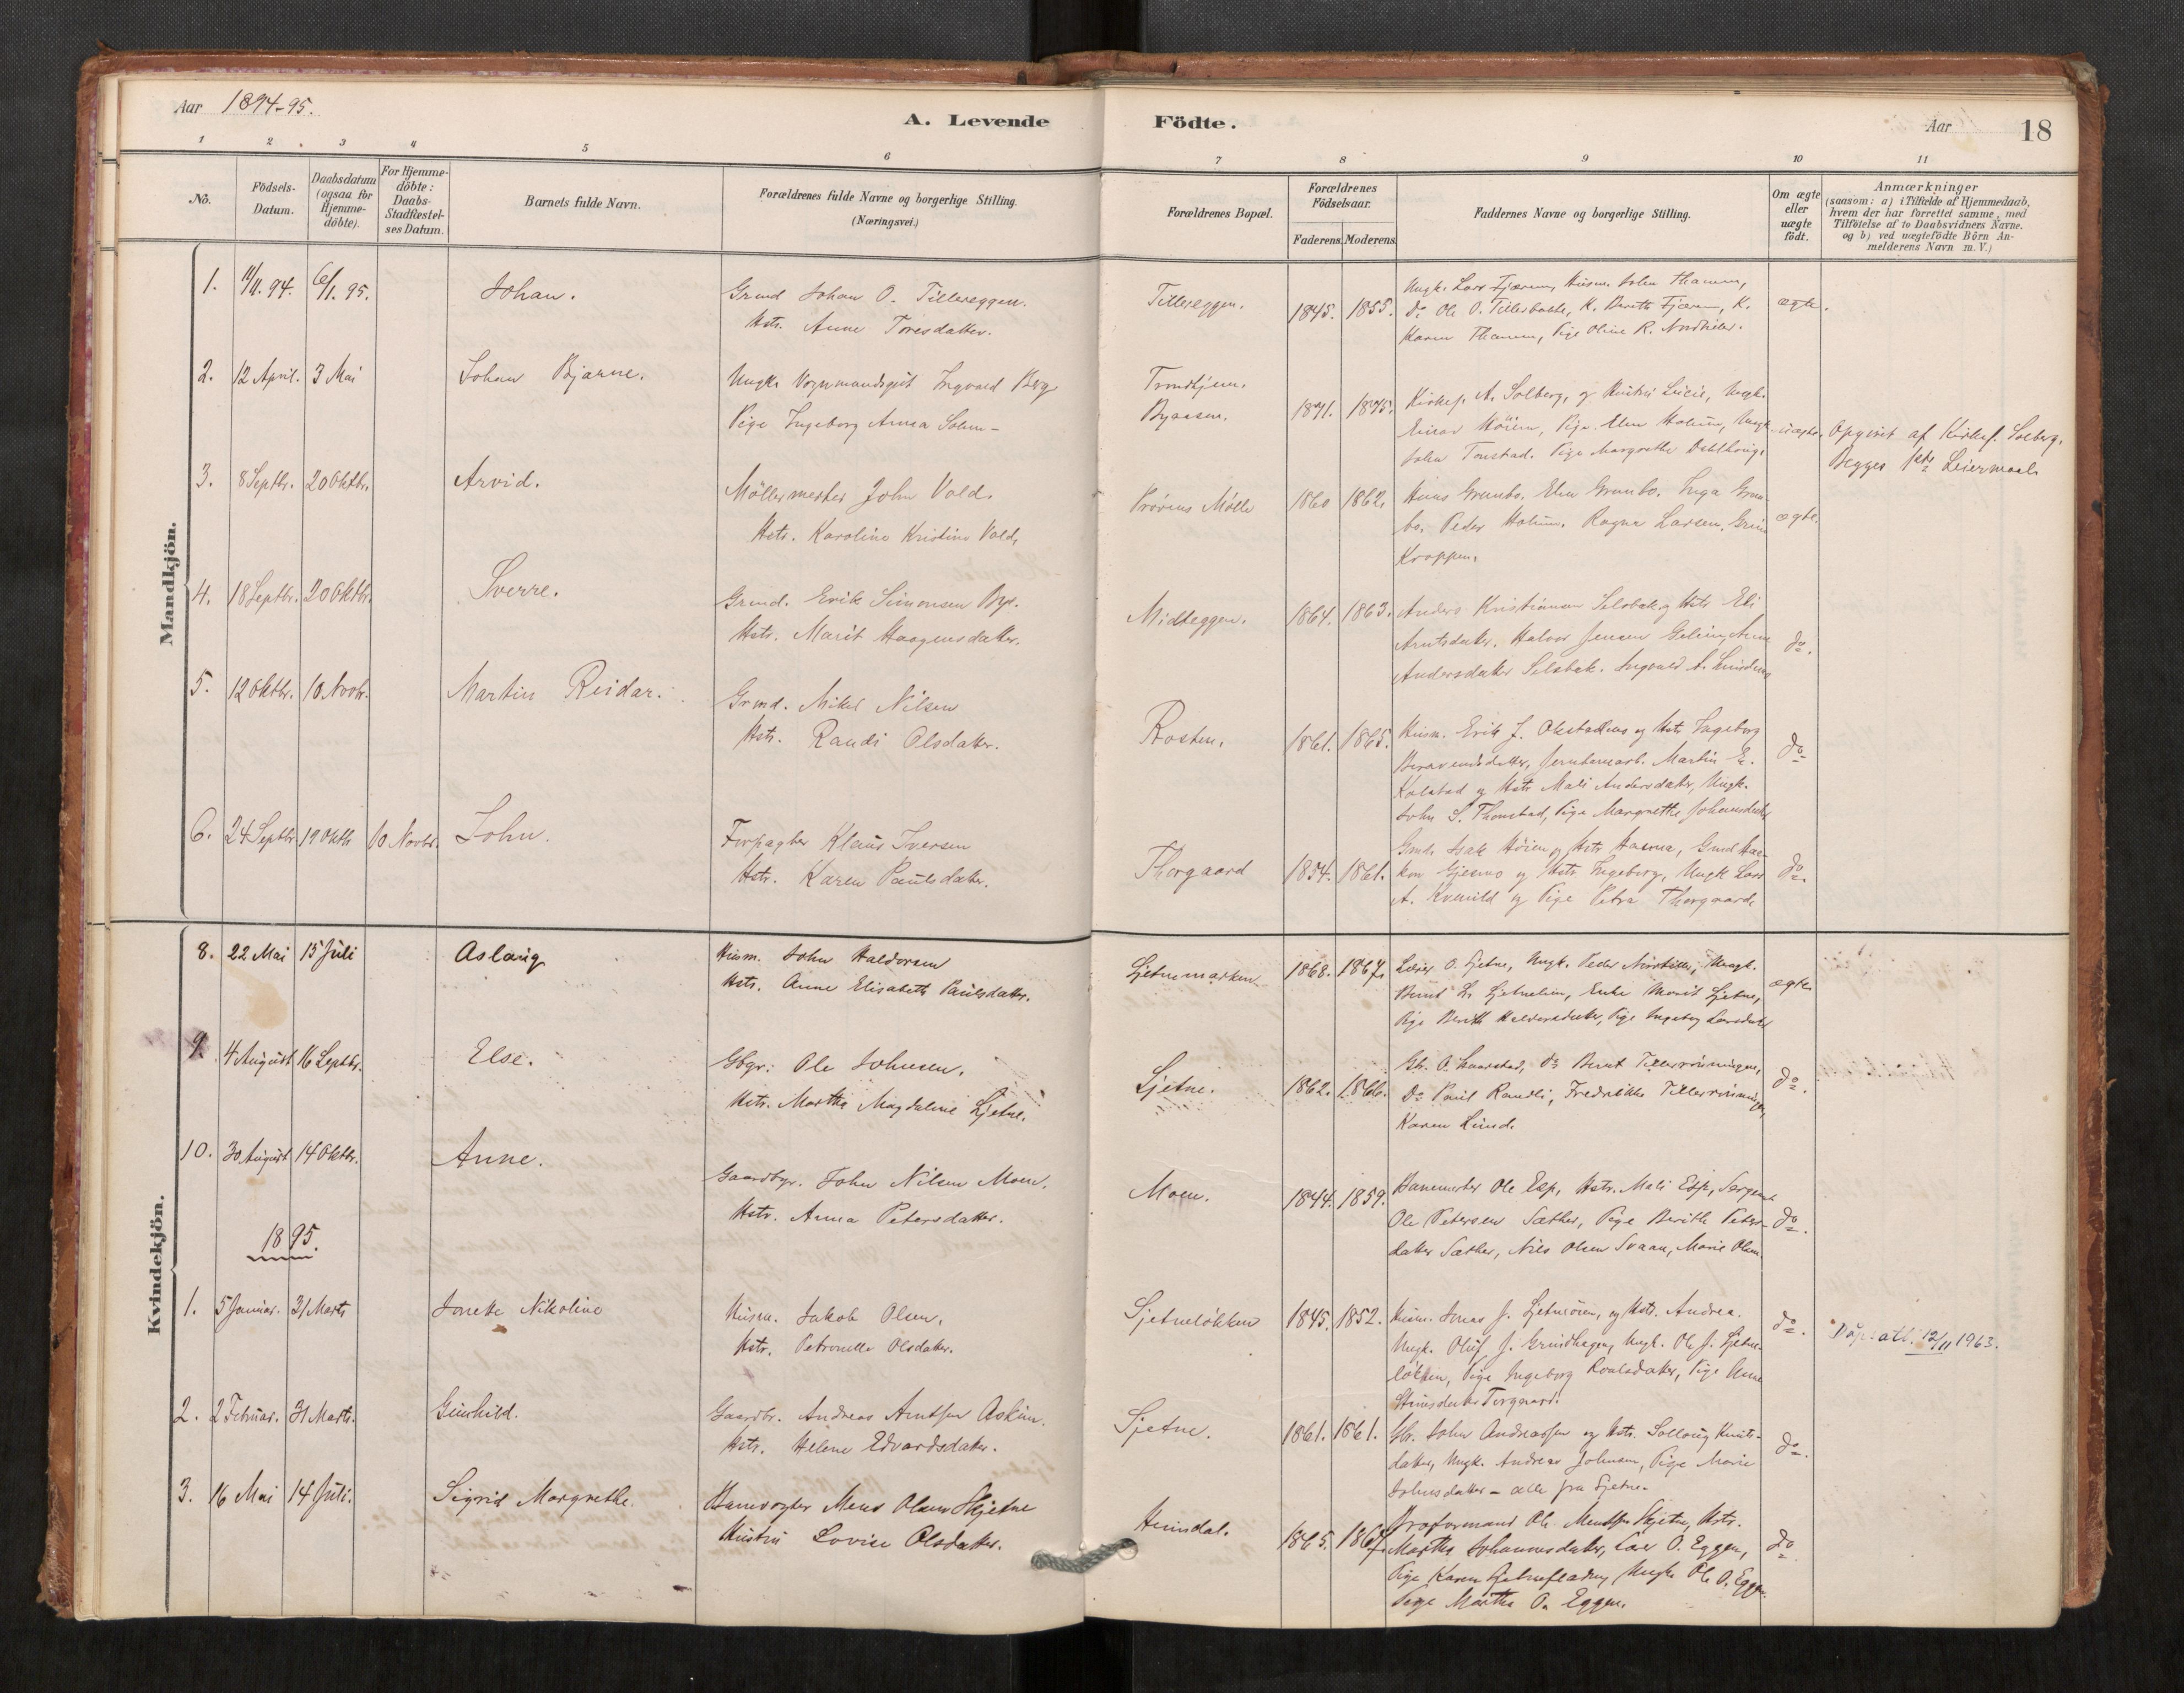 Aar 1894-95.
A. Levende Födte.
Aar 18
1 2 3 4 5 6 7 8 9 10 11
No.
Födsels-Datum.
Daabsdatum (ogsaa for Hjemme-döbte).
For Hjemme-döbte: Daabs-Stadfæstel-ses Datum.
Barnets fulde Navn.
Forældrenes fulde Navne og borgerlige Stilling.
(Næringsvei.)
Forældrenes Bopæl.
Forældrenes Födselsaar.
Faderens. Moderens.
Faddernes Navne og borgerlige Stilling.
Om ægte eller uægte födt.
Anmærkninger
(saasom: a) i Tilfælde af Hjemmedaab,
hvem der har forrettet samme, med
Tilföielse af to Daabsvidners Navne.
og b) ved uægtefödte Börn An-
melderens Navn m. V.)
Mandkjön.
1. 11/11. 94. 6/1. 95. Johan.
Grmd Johan O. Tillereggen.
Kstr. Anne Toresdatter.
Tillereggen. 1845. 1855.
Ungk. Lars Fjærem, Husm. John Thamm,
do Ole O. Tillerbakk, K. Berith Fjærem, K.
Karen Thamm, Pige Oline R.
ægte.
2. 12 April. 3 Mai Johan Bjarne.
Ungk. Vognmandsgut Ingvald Berg
Pige Ingeborg Anna Solem-
Trondhjem.
Byaasen. 1871. 1875.
Kirkes. A. Solberg, og Hustru Lucie, Ungk.
Einar Höiem, Pige Elen Holum, Ungk
John Tonstad. Pige Margrethe
uægte.
Opgivet af Kirkes. Solberg.
Begges 1ste Leiermaal.
3. 8 Septbr. 20 Oktbr. Arvid.
Möllermester John Vold.
Kstr. Karoline Kristine Vold.
Prövens Mölle 1860 1862.
Hans Grumbo. Elen Grumbo. Inga Grum-
bo. Peder Holum. Ragna Larsen.
Kroppen.
ægte.
4. 18 Septbr. 20 Oktbr. Sverre.
Grmd. Erik Simonsen Bye.
Kstr. Marit Haagensdatter.
Midteggen. 1864. 1863.
Anders Kristiansen Selsbak og Kstr Eli
Arntsdatter. Halvor Jensen
Andersdatter Selsbak. Ingvald A.
do.
5. 12 Oktbr. 10 Novbr. Martin Reidar.
Grmd. Mikel Nilsen
Kstr. Randi Olsdatter.
Rosten. 1861. 1865.
Husm. Erik J. og Kstr Ingeborg
Jernbanearb. Martin E.
Kolstad og Kstr Mali Andersdatter, Ungk.
John S. Thonstad, Pige Margrethe Johansdatter
do
6. 24 Septbr 19 Oktb 10 Novbr. John.
Forpagter Klaus Iversen
Kstr. Karen Paulsdatter.
Thorgaard 1834. 1861.
Grmd. Isak Höiem og Kstr Hanna, Grmd Haa-
kon og Kstr Ingeborg, Ungk Lars
A. Kvenild og Pige Petra Thorgaard.
do.
Kvindekjön.
8. 22 Mai 15 Juli Aslaug
Husm. John Haldorsen
Kstr. Anne Elisabeth Paulsdatter.
Sjetnemarken. 1868. 1867.
Lærer O. Sjetne, Ungk. Peder, Ungk.
Bernt Sjetnelien, Enke Marit Sjetne,
Pige Berith Haldorsdatter, Pige Ingeborg Larsdatter
ægte.
9. 4 August 16 Septbr. Else.
Gbgr. Ole Johnsen.
Kstr. Martha Magdalene Sjetne.
Sjetne. 1862. 1866.
Gbr. O. Kvarstad, do Bernt Tillerrönningen,
Do Paul Randli, Fredrikke Tillerrönningen
Karen Lund.
do.
10. 30 August 14 Oktbr. Anne.
Gaardbgr. John Nilsen Moen.
Kstr. Anna Petersdatter.
Moen. 1844. 1859.
Banemester Ole Esp, Kstr. Mali Esp, Sergeant
Ole Petersen Sæther, Pige Berith Peters-
datter Sæther, Nils Olsen Svaan, Marie Olsen.
do.
1895.
1. 5 Januar. 31 Marts Jonette Nikoline
Husm. Jakob Olsen.
Kstr. Petronelle Olsdatter.
Sjetneløkken 1845. 1852.
Husm. Jonas J. Sjetneöien, og Kstr. Andrea.
Ungk. Oluf J. Grundhagen, Ungk. Ole J. Sjetne-
løkken, Pige Ingeborg Roaldsdatter, Pige Anne
Torgaard.
do.
Dåp.att. 12/11 1963.
2. 2 Februar. 31 Marts. Gunhild.
Gaardbr. Andreas Arntsen Askim.
Kstr. Helene Edvardsdatter.
Sjetne. 1861. 1861.
Gbr. John Andreassen og Kstr. Solloug Knuts-
datter, Ungk. Andreas Johnsen, Pige Marie
Johnsdatter - alle fra Sjetne.
do.
3. 16 Mai 14 Juli. Sigrid Margrethe.
Banevogter Mens Olsen Skjetne
Hustru Lovise Olsdatter.
Heimdal. 1865. 1867.
Proformand Ole Mentsen Skjetne, Kstr.
Martha Johannesdatter, Lars O. Eggen,
Pige Karen Sjetnefladen, Ungk Ole O. Eggen.
Pige Martha O. Eggen.
do